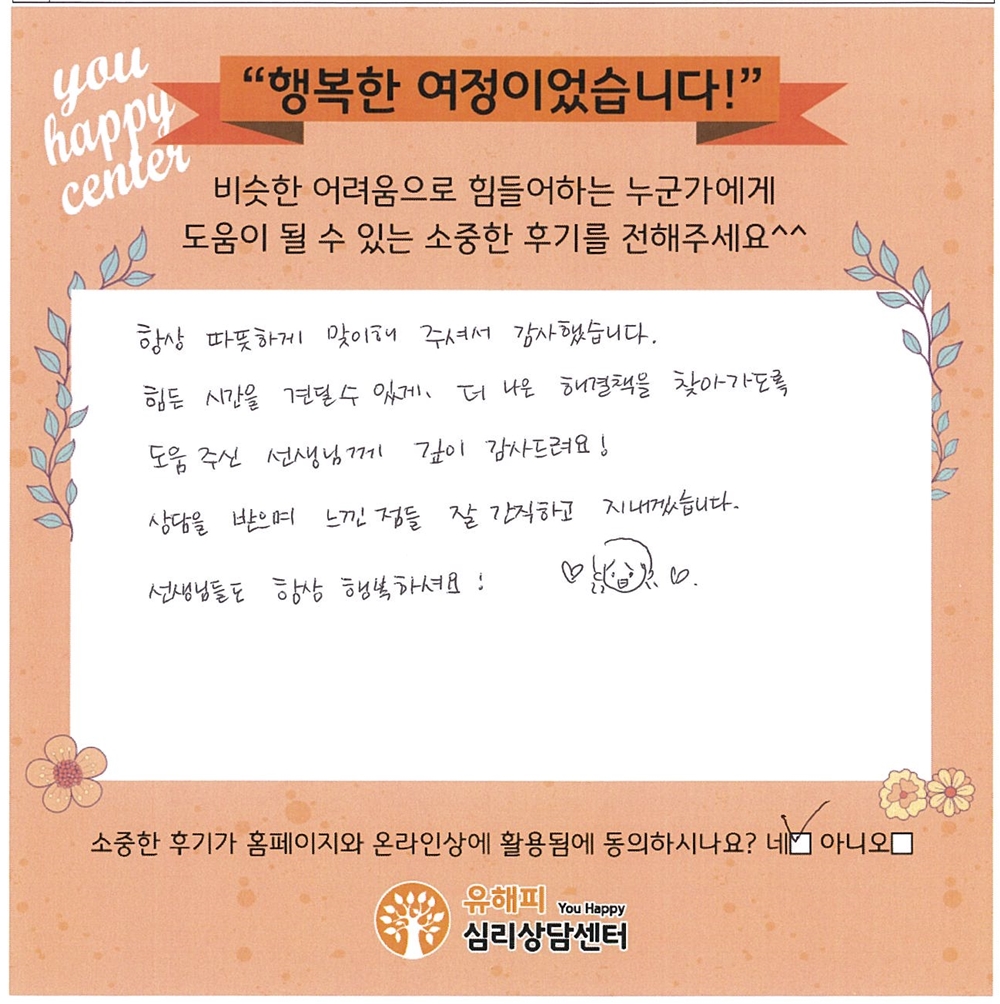 you
happy
center
“행복한 여정이었습니다!”
비슷한 어려움으로 힘들어하는 누군가에게
도움이 될 수 있는 소중한 후기를 전해주세요^^
항상 따뜻하게 맞이해 주셔서 감사했습니다.
힘든 시간을 견딜 수 있게, 더 나은 해결책을 찾아가도록
도움 주신 선생님께 깊이 감사드려요!
상담을 받으며 느낀 점들 잘 간직하고 지내겠습니다.
선생님들도 항상 행복하셔요!
소중한 후기가 홈페이지와 온라인상에 활용됨에 동의하시나요? 네 아니오
유해피 You Happy
심리상담센터